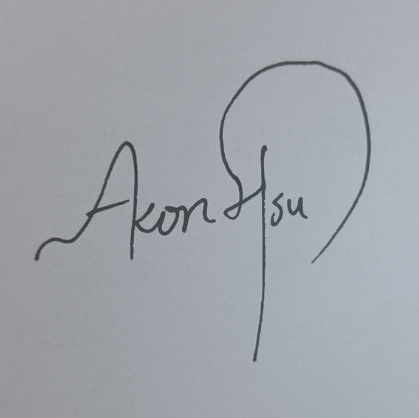 Akon Hsu